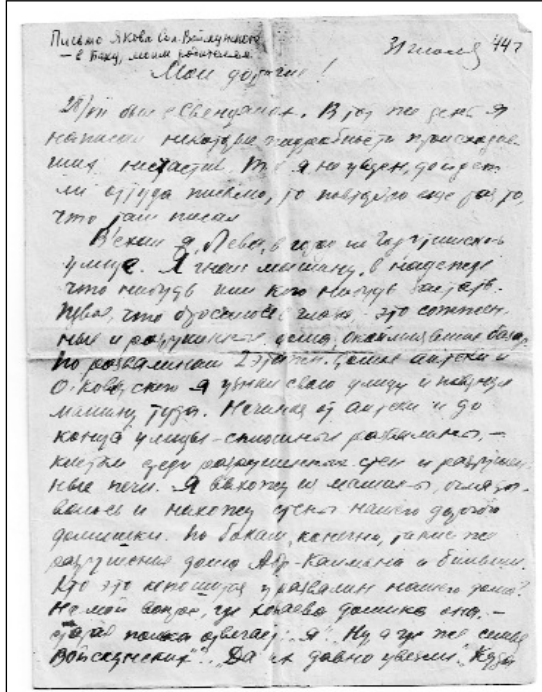 Письмо Якова Сол. Войскунского
— в Баку, моим родителям
31 июля 44 г
Мои дорогие!
28/VII был в Свенцянах. В тот же день я
написал некоторые подробности происходив
ших несчастий. Т.к. я не уверен, дойдет
ли оттуда письмо, то повторяю еще раз то,
что там писал
Въехали я, Лева, в город по
улице. Я гнал машину, в надежде
что нибудь или кого нибудь застать.
Первое, что бросилось в глаза - это сожжен
ные и разрушенные дома, окаймлявшие базар.
По развалинам 2 этажн. дома аптеки и
я узнал свою улицу и повернул
машину туда. Начиная от аптеки и до
конца улицы - сплошные развалины, -
среди разрушенных стен и разрушен
ные печи. Я выхожу из машины, огляды
ваюсь и нахожу стены нашего дорогого
домишки. По бокам, конечно, такие же
разрушенные дома Абр. Каймана и
Кто это копошится у развалин нашего дома?
На мой вопрос, где хозяева домика она, -
старая полька отвечает: "Я". Ну а где же семья
Войскунских"? "Да их давно увезли". "Куда